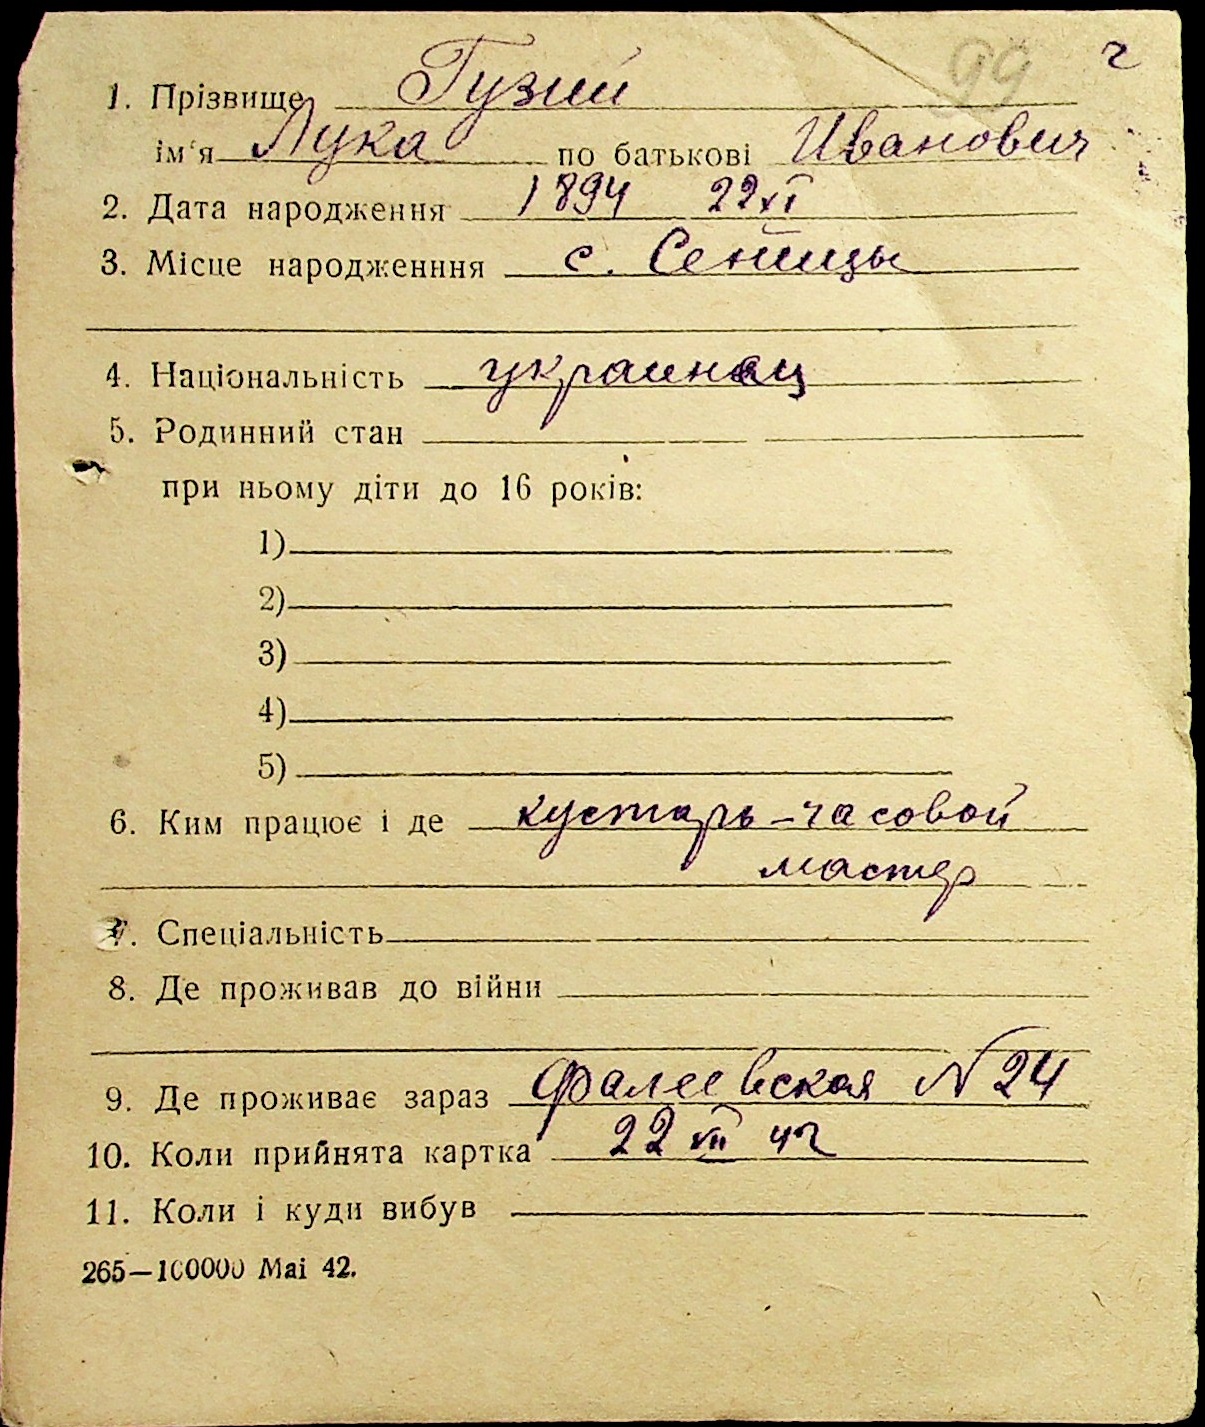 99 г
1. Прізвище Гузий
ім'я Лука по батькові Иванович
2. Дата народження 1894 22 XI
3. Місце народженння с. Сеницы
4. Національність украинец
5. Родинний стан
при ньому діти до 16 років:
1)
2)
3)
4)
5)
6. Ким працює і де кустарь-часовой
мастер
7. Спеціальність
8. Де проживав до війни
9. Де проживає зараз Фалеевская N 24
10. Коли прийнята картка 22 VII 42
11. Коли і куди вибув
265—100000 Mai 42.